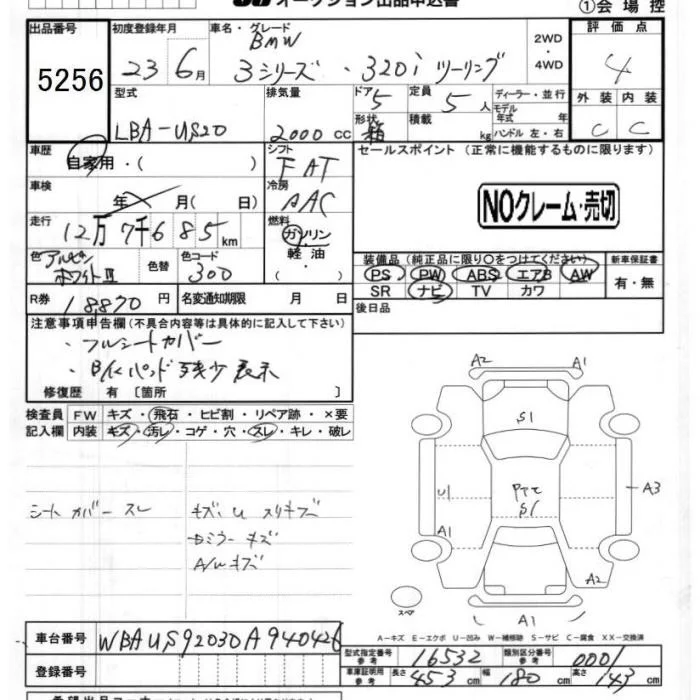 オークション出品申込書
①会場控
出品番号 初度登録年月 車名・グレード 評価点
5256 23 6月 BMW 2WD・4WD 4
3シリーズ・320i ツーリング
型式 排気量 ドア 5 定員 5人 ディーラー・並行 外装 内装
モデル年式 年式
LBA-US20 2000cc 形状 箱 積載 kg ハンドル 左・右 C C
車歴 自家用・( ) シフト FAT セールスポイント(正常に機能するものに限ります)
車検 年 月( 日) 冷房 AAC NOクレーム・売切
走行 12万7千685km 燃料 ガソリン・軽油・
色 アルピンホワイトIII 色替 色コード 300 装備品(純正品に限り○をつけてください) 新車保証書
PS PW ABS エアB AW 有・無
SR ナビ TV カワ
R券 18,870円 名変通知期限 月 日 後日品
注意事項申告欄(不具合内容等は具体的に記入して下さい)
・フルシートカバー
・B/Kパッド残少表示
修復歴 有 [箇所 ]
検査員記入欄 FW キズ・飛石・ヒビ割・リペア跡・×要
内装 キズ・汚レ・コゲ・穴・スレ・キレ・破レ
シートカバースレ
キズ、U スリキズ
Dミラーキズ
A/Wキズ
A2 A1
S1
U1 A3
S1
A1
A2
スペア
A1
A-キズ E-エクボ U-凹み W-補修跡 S-サビ C-腐食 XX-交換済
車台番号 WBAUS92030A940426
登録番号
型式指定番号 参考 16532 類別区分番号 参考 0001
車庫証明記入欄 参考 長さ 453cm 幅 180cm 高さ 143cm